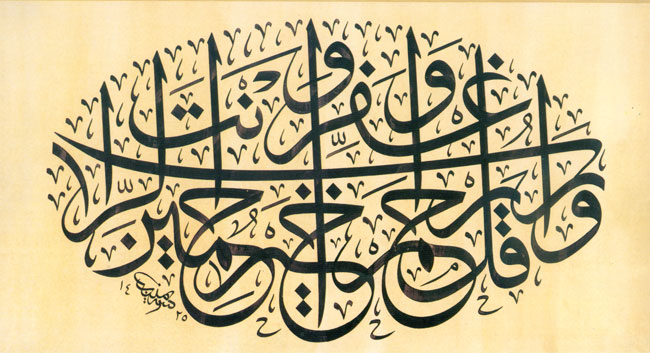 وقل رب اغفر وارحم وانت خير الراحمين
١٤٢٥